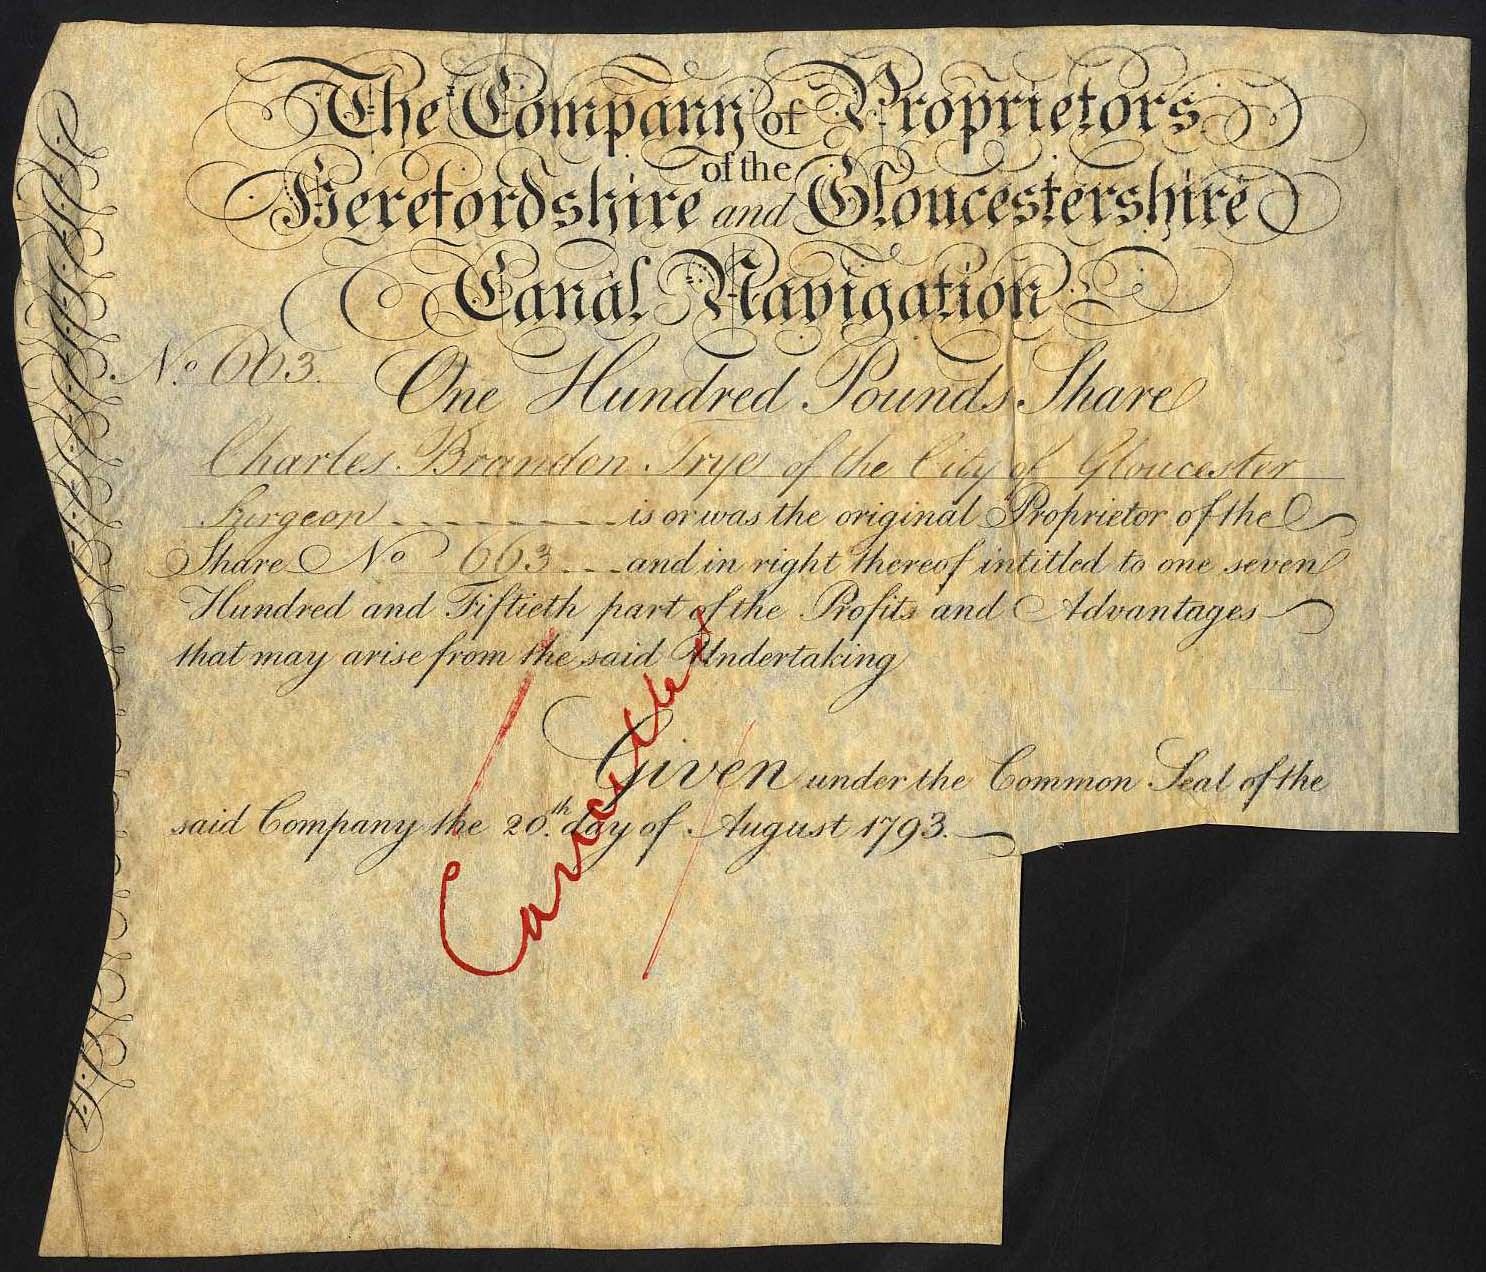 The Company of Proprietors
of the
Herefordshire and Gloucestershire
Canal Navigation
No. 663.
One Hundred Pounds Share
Charles Brandon Trye of the City of Gloucester
Surgeon is or was the original Proprietor of the
Share No 663 and in right thereof intitled to one seven
Hundred and Fiftieth part of the Profits and Advantages
that may arise from the said Undertaking
Given under the Common Seal of the
said Company the 20.th day of August 1793.
Cancelled